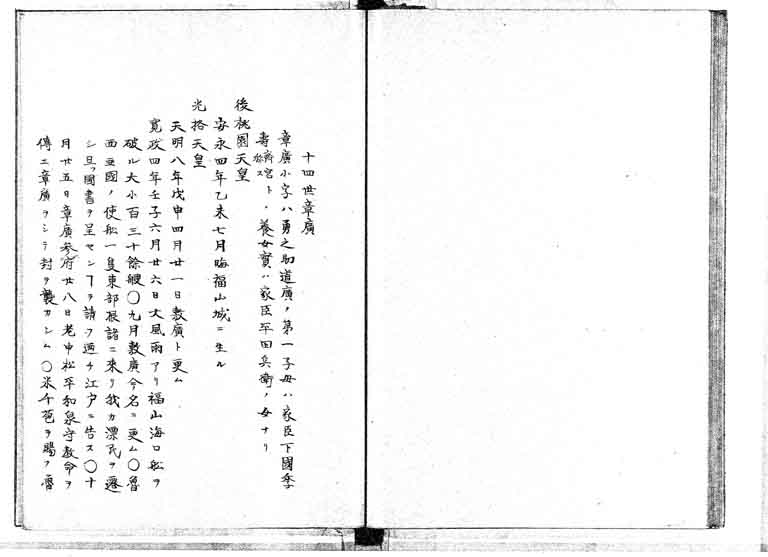 十四世章廣
章廣小字ハ勇之助道廣ノ第一子母ハ家臣下國季
寿齋宮ト称ス、養女實ハ家臣平田兵衛ノ女ナリ
後桃園天皇
安永四年乙未七月晦福山城ニ生ル
光格天皇
天明八年戊申四月廿一日敷廣ト更ム
寛政四年壬子六月廿六日大風雨アリ福山海口船ヲ
破ル大小百三十餘艘〇九月敷廣今名ニ更ム〇魯
西亜國ノ使船一隻東部根諸ニ来リ我カ漂民ヲ還
シ且ツ國書ヲ呈センヿヲ請フ迺チ江戸ニ告ス〇十
月廿五日章廣参府廿八日老中松平和泉守教命ヲ
傳ニ章廣ヲシテ封ヲ襲カシム〇米千苞ヲ賜フ魯